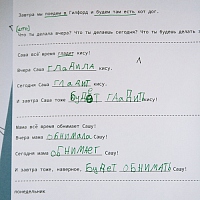 Завтра мы поедем в Гилфорд и будем там есть хот дог.
Что ты делала вчера? Что ты делаешь сегодня? Что ты будешь делать з
Саша всё время гладит кису!
Вчера Саша ГЛАДИЛА кису.
Сегодня Саша ГЛАДИТ кису.
И завтра Саша тоже БУДЕТ ГЛАДИТЬ кису!
Мама всё время обнимает Сашу!
Вчера мама ОБНИМАЛА Сашу.
Сегодня мама ОБНИМАЕТ Сашу.
И завтра тоже, наверное, БУДЕТ ОБНИМАТЬ Сашу!
понедельник